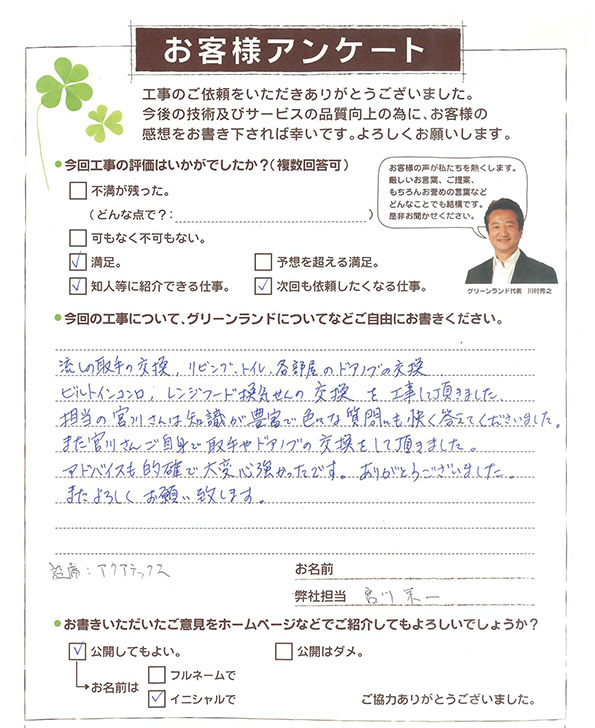 お客様アンケート
工事のご依頼をいただきありがとうございました。
今後の技術及びサービスの品質向上の為に、お客様の
感想をお書き下されば幸いです。よろしくお願いします。
今回工事の評価はいかがでしたか?(複数回答可)
不満が残った。
(どんな点で?: )
可もなく不可もない。
満足。 予想を超える満足。
知人等に紹介できる仕事。 次回も依頼したくなる仕事。
お客様の声が私たちを熱くします。
厳しいお言葉、ご提案、
もちろんお誉めの言葉など
どんなことでも結構です。
是非お聞かせください。
グリーンランド代表 川村秀之
今回の工事について、グリーンランドについてなどご自由にお書きください。
流しの取手の交換、リビング、トイレ、各部屋のドアノブの交換
ビルトインコンロ、レンジフード換気せんの交換を工事して頂きました。
担当の宮川さんは知識が豊富で色々な質問にも快く答えてくださいました。
また宮川さんご自身で取手やドアノブの交換をして頂きました。
アドバイスも的確で大変心強かったです。ありがとうございました。
またよろしくお願い致します。
設備:アクアテックス
お名前
弊社担当 宮川
お書きいただいたご意見をホームページなどでご紹介してもよろしいでしょうか?
公開してもよい。 公開はダメ。
お名前は フルネームで
イニシャルで
ご協力ありがとうございました。